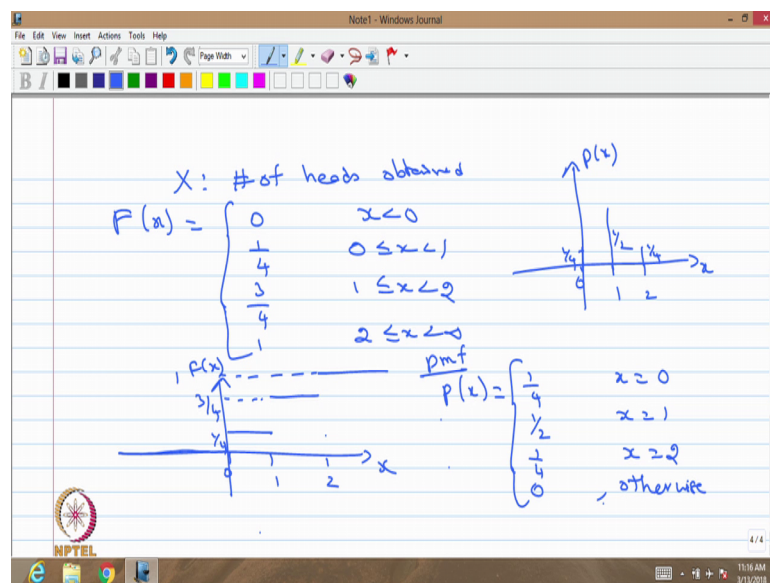 Note1 - Windows Journal
File Edit View Insert Actions Tools Help
Page Width
B I
X: # of heads obtained
F(x) =
0 x<0
1/4 0 ≤ x < 1
3/4 1 ≤ x < 2
1 2 ≤ x < ∞
P(x)
1/4 1/2 1/4 x
0 1 2
F(x)
1
3/4
1/4
0 1 2 x
pmf
p(x) =
1/4 x = 0
1/2 x = 1
1/4 x = 2
0, otherwise
NPTEL
4/4
11:16 AM
3/13/2018